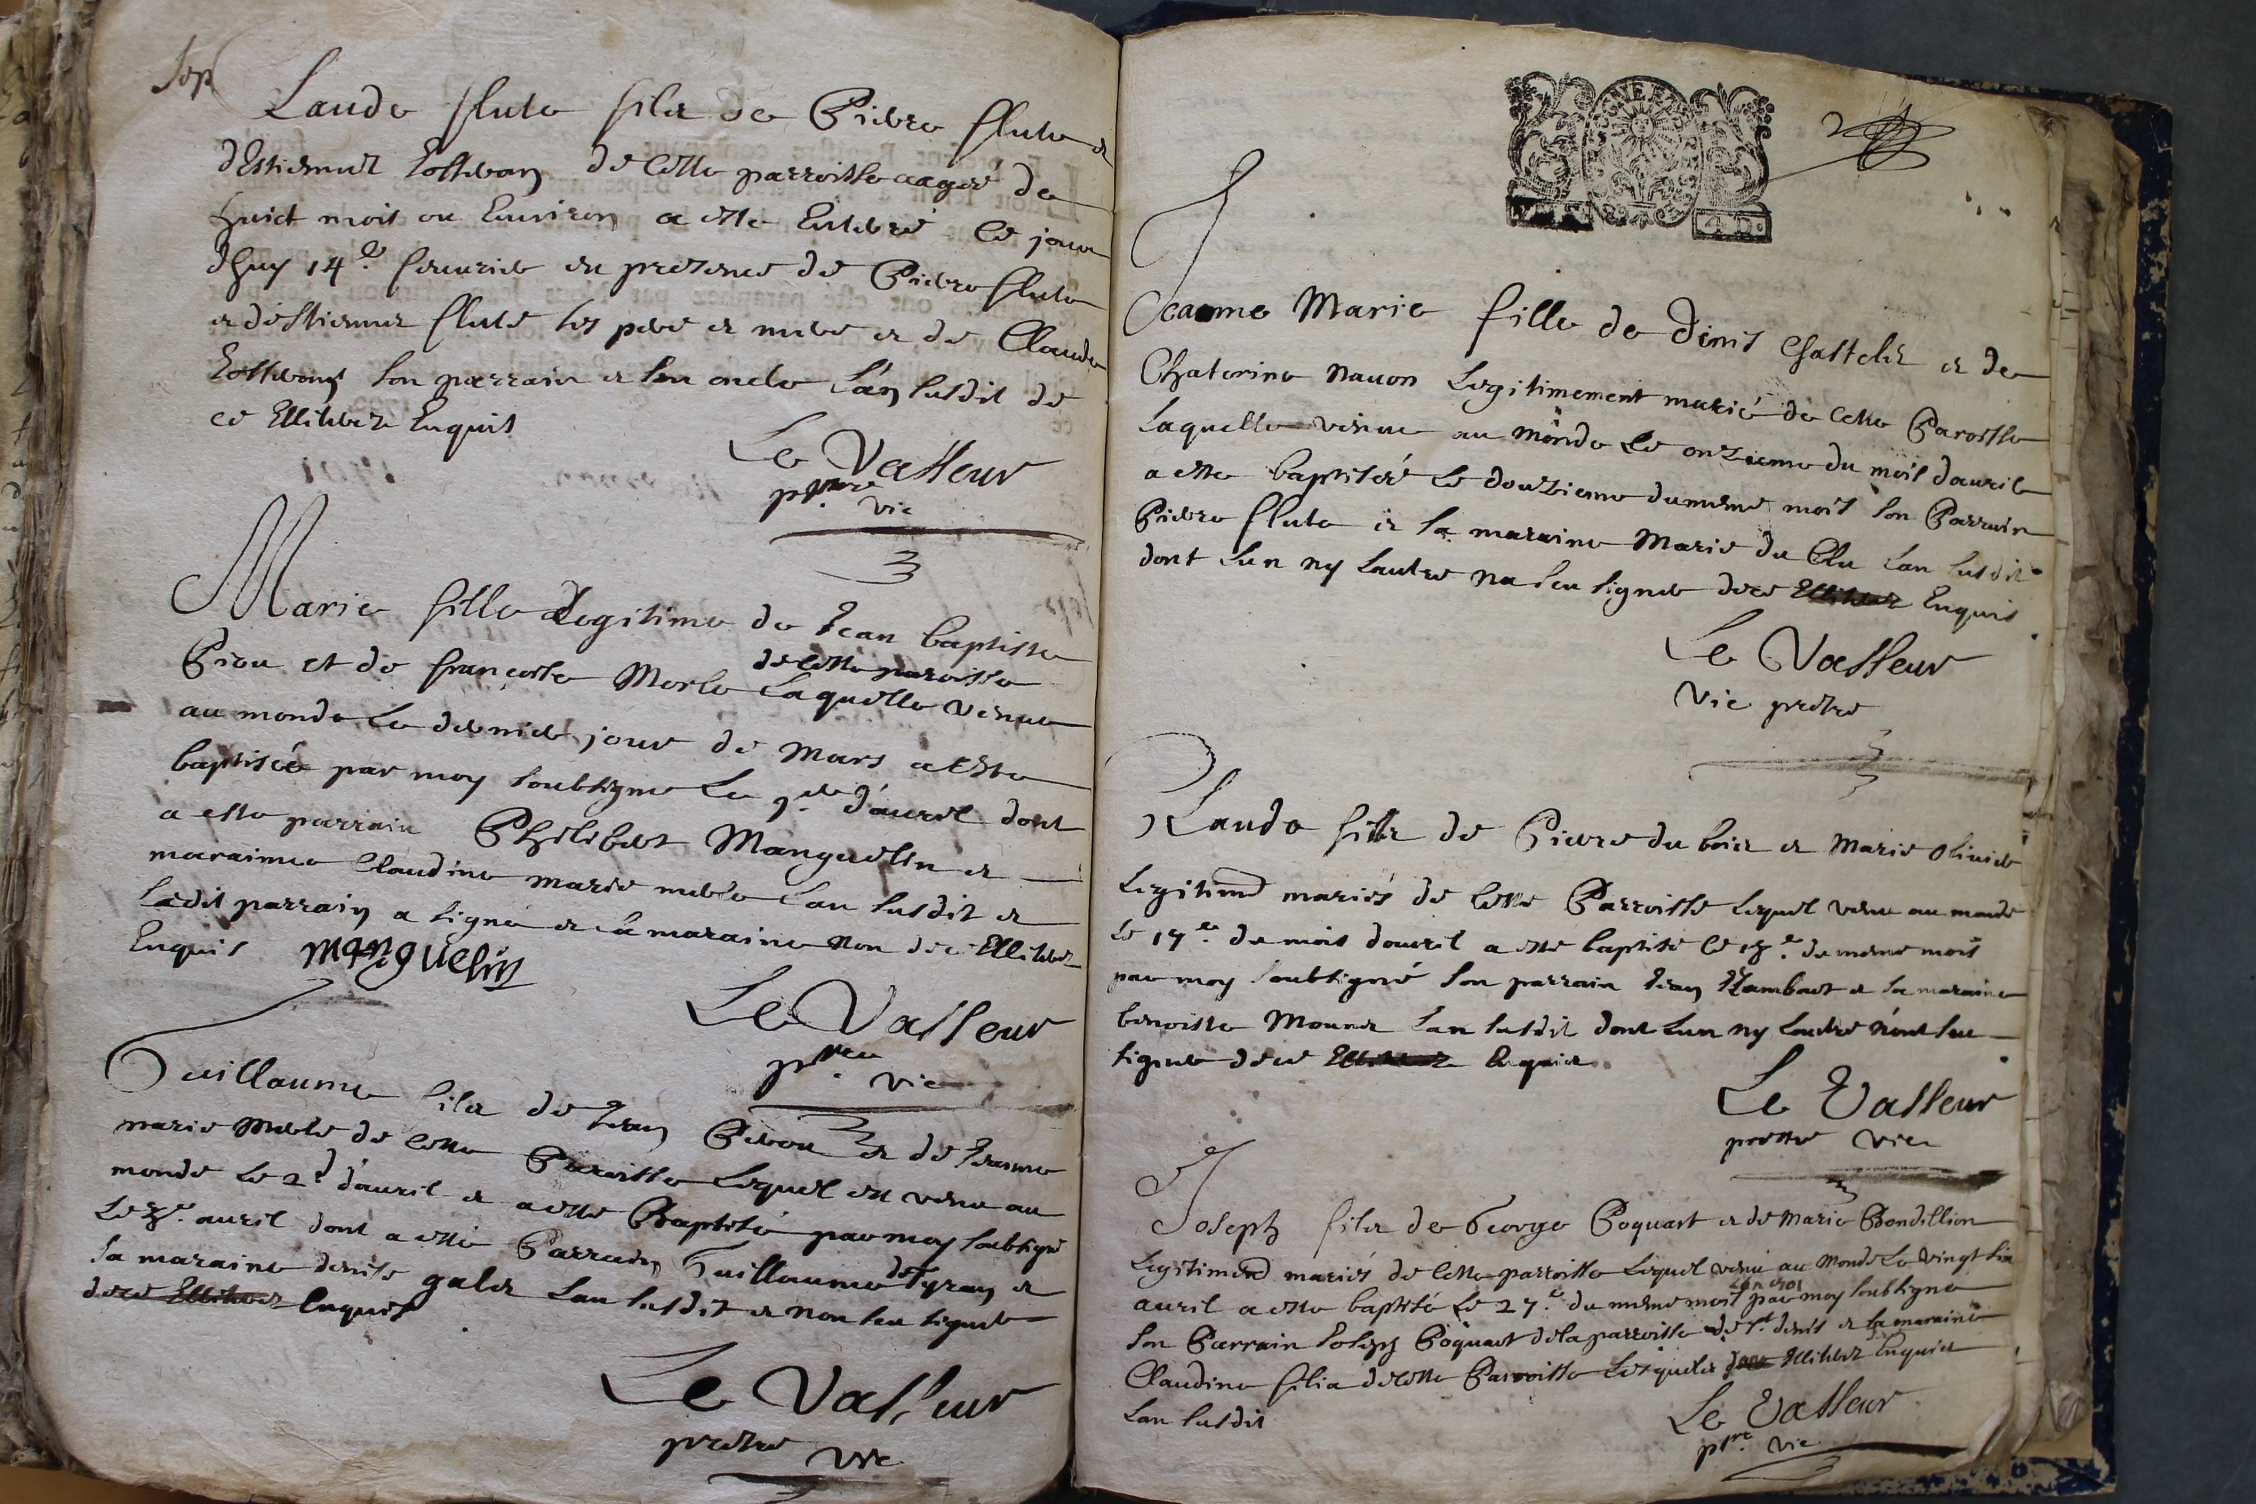 Sep
Laude flute fils de Pierre flute et
dEstiennet de cette parroisse aagée de
huict mois ou Environ a este Enterré ce jour
dhuy 14.e feuurier en presence de Pierre flute
et destiennet flute ses pere et mere et de Claude
son parrain et son oncle L'an susdit de
ce Illiterez Enquis
Le Vasseur
ptre vic
Marie fille Legitime de Jean baptiste
de cette paroisse
Piou et de françoise Morle Laquelle venue
au monde Le dernier jour de Mars a Este
baptisée par moy soubsigne Le 1.er d'auril dont
a este parrain Philibert Manguelin et
maraine Claudine marie merle L'an susdit et
Ledit parrain a signé et la maraine non de ce Illiterez
Enquis manguelin
Le Vasseur
ptre vic
Guillaume fils de Jean Perou et de Jeanne
marie Merle de cette Paroisse Lequel est venu au
monde Le 2.d d'auril et a este Baptisé par moy soubsigné
Le 3.e auril dont a esté Parrain Guillaume de Tyran et
la maraine denise galet Lan susdit et non sceu signer
de ce Illiterez Enquis
Le Vasseur
prestre vic
2
GNE ET
4 D.
Jeanne Marie fille de Denis Chastelet et de
Chaterine Nauon Legitimement marié de cette Paroisse
Laquelle venue au monde Le onzieme du mois dauril
a este baptisée Le douzieme du meme mois son Parrain
Pierre flute et sa maraine Marie du Clu Lan susdit
dont Lun ny Lautre na sceu signer de ce Illiterez Enquis
Le Vasseur
Vic prestre
Claude fils de Pierre du bois et Marie Oliuier
Legitimemt mariés de cette Parroisse Lequel venu au monde
Le 17.e du mois dauril a este baptisé le 18.e du meme mois
par moy soubsigné son parrain Jean Lambert et sa maraine
benoiste Mounet Lan susdit dont Lun ny Lautre n'ont sceu
signer de ce Illiterez Enquis
Le Vasseur
prestre vic
Joseph fils de George Poquart et de Marie Bondillion
Legitimemt mariés de cette parroisse Lequel venu au Monde Le vingt six
auril a este baptisé Le 27.e du meme mois par moy soubsigné
son Parrain Joseph Poquart de la parroisse de St. denis et sa maraine
Claudine filia de cette Parroisse Lesquels de ce Illiterez Enquis
Lan susdit
Le Vasseur
ptre vic